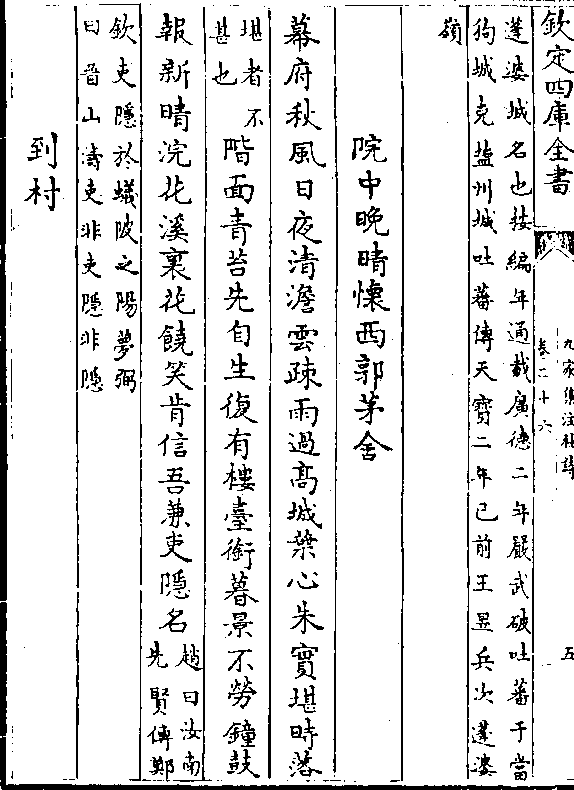 欽定四庫全書
九家集注杜詩
卷二十六
五
蓬婆城名也按編年通載廣德二年嚴武破吐蕃于當
狗城克鹽州城吐蕃傳天寶二年已前王昱兵次蓬婆
嶺
院中晚晴懷西郭茅舍
幕府秋風日夜清澹雲疎雨過高城葉心朱實堪時落
堪者不
甚也
階面青苔先自生復有樓臺銜暮景不勞鐘鼓
報新晴浣花溪裏花饒笑肯信吾兼吏隱名
趙曰汝南
先賢傳鄭
欽吏隱於蟻陂之陽夢弼
曰晉山濤吏非吏隱非隱
到村